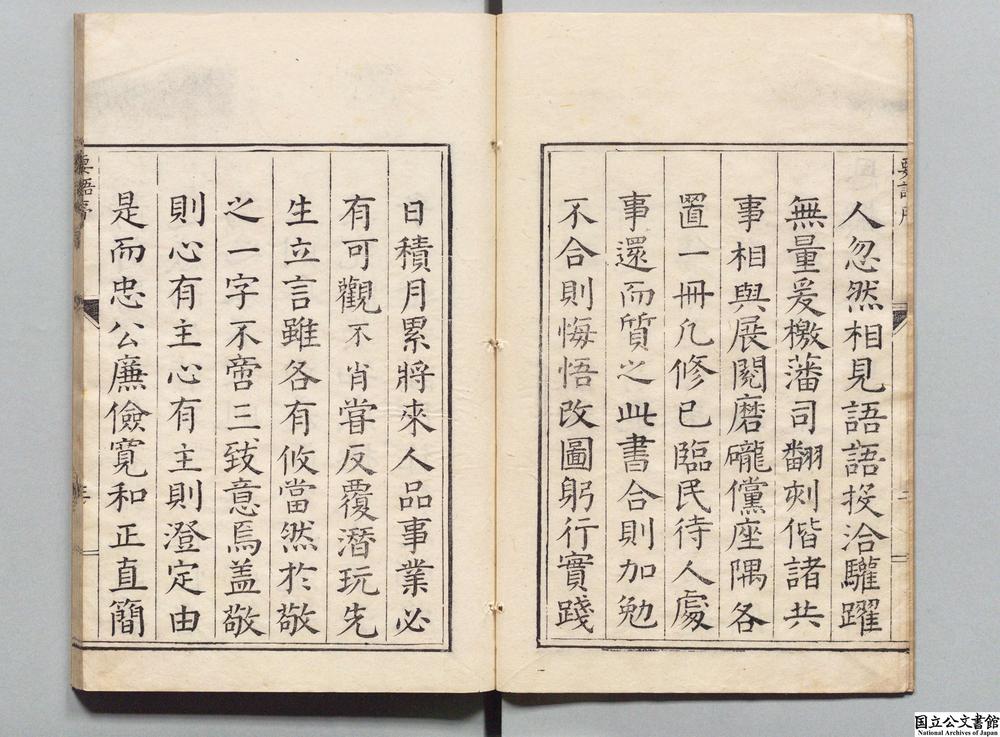 人忽然相見語語投洽驩躍
無量爰檄藩司翻刺偕諸共
事相與展閱磨礲儻座隅各
置一冊凡修已臨民待人處
事還而質之此書合則加勉
不合則悔悟改圖躬行實踐
要語序
二
日積月累將來人品事業必
有可觀不肖嘗反覆潛玩先
生立言雖各有攸當然於敬
之一字不啻三致意焉盖敬
則心有主心有主則澄定由
是而忠公廉儉寬和正直簡
要語序
三
国立公文書館
National Archives of Japan